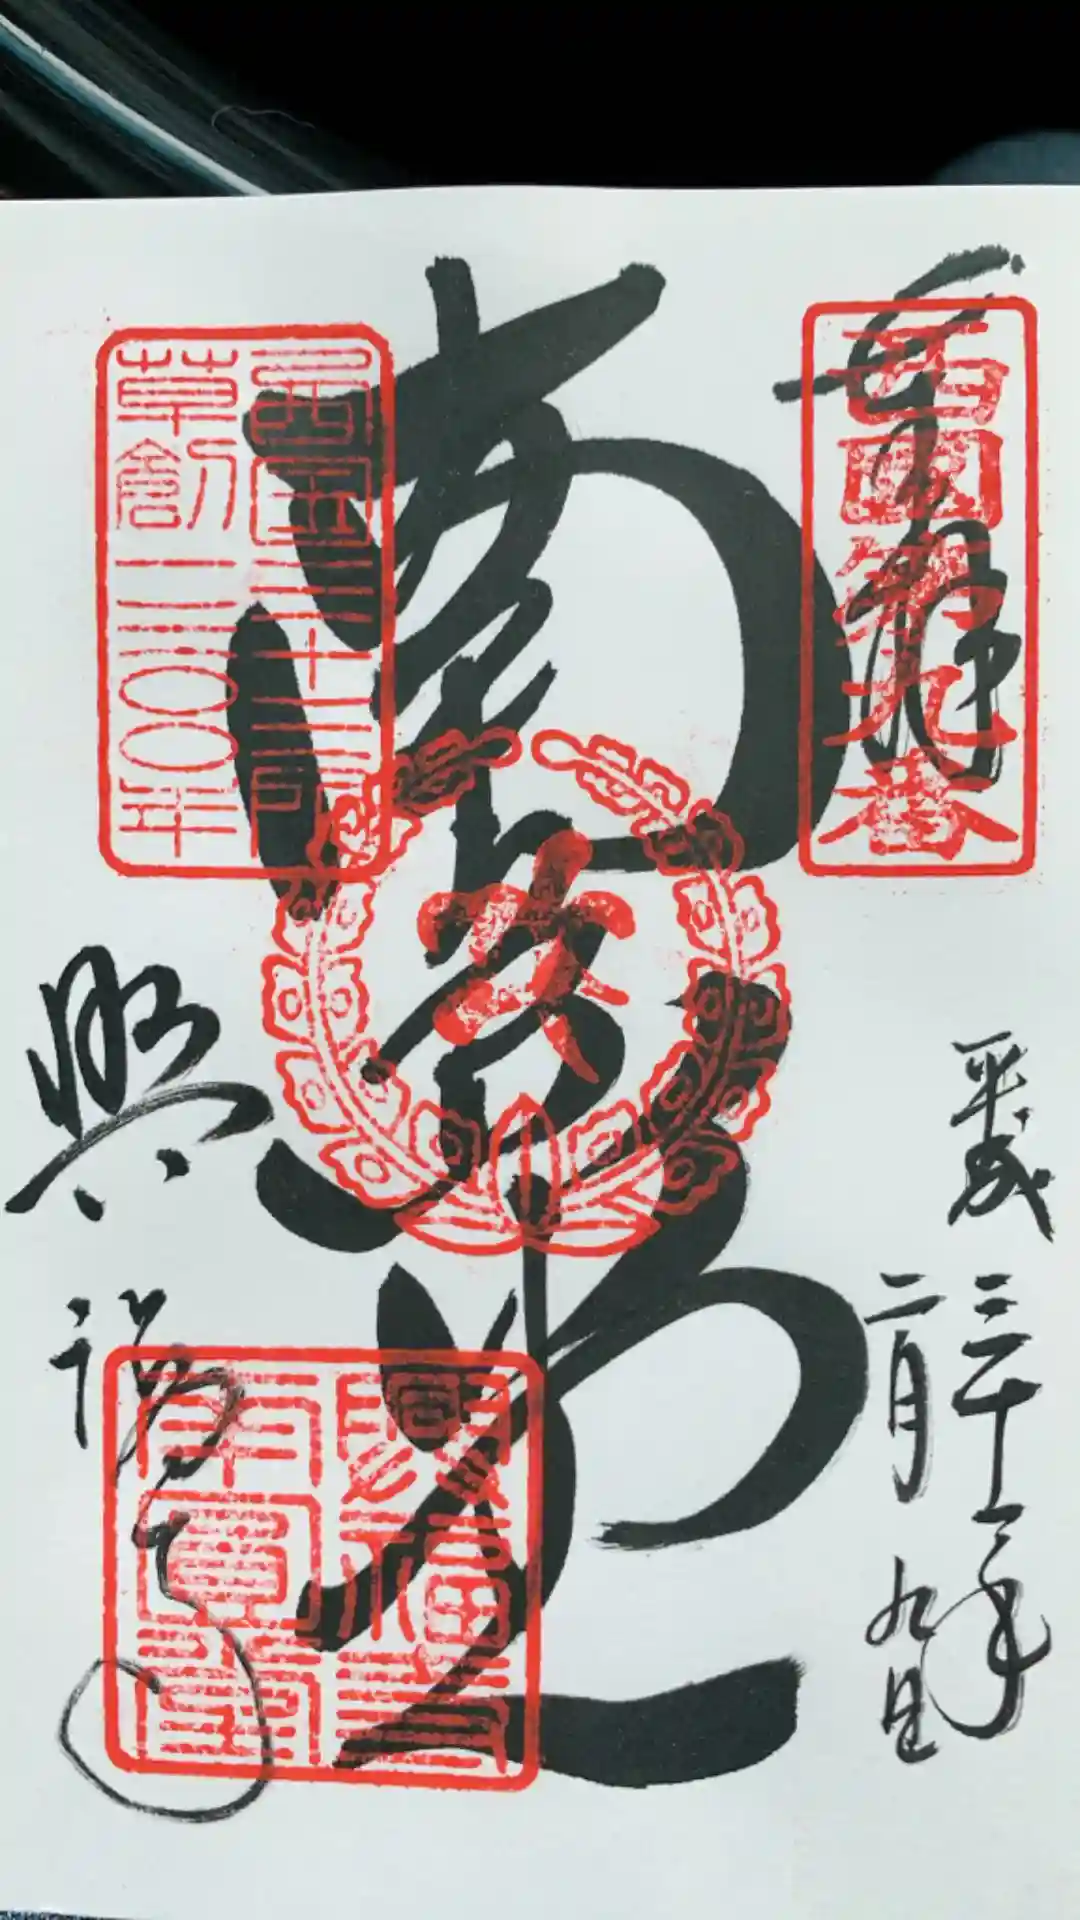 奉拝
西國第九番
平成三十一年
二月九日
南円堂
西国三十三所
草創一三〇〇年
興福寺
興福寺
南圓堂